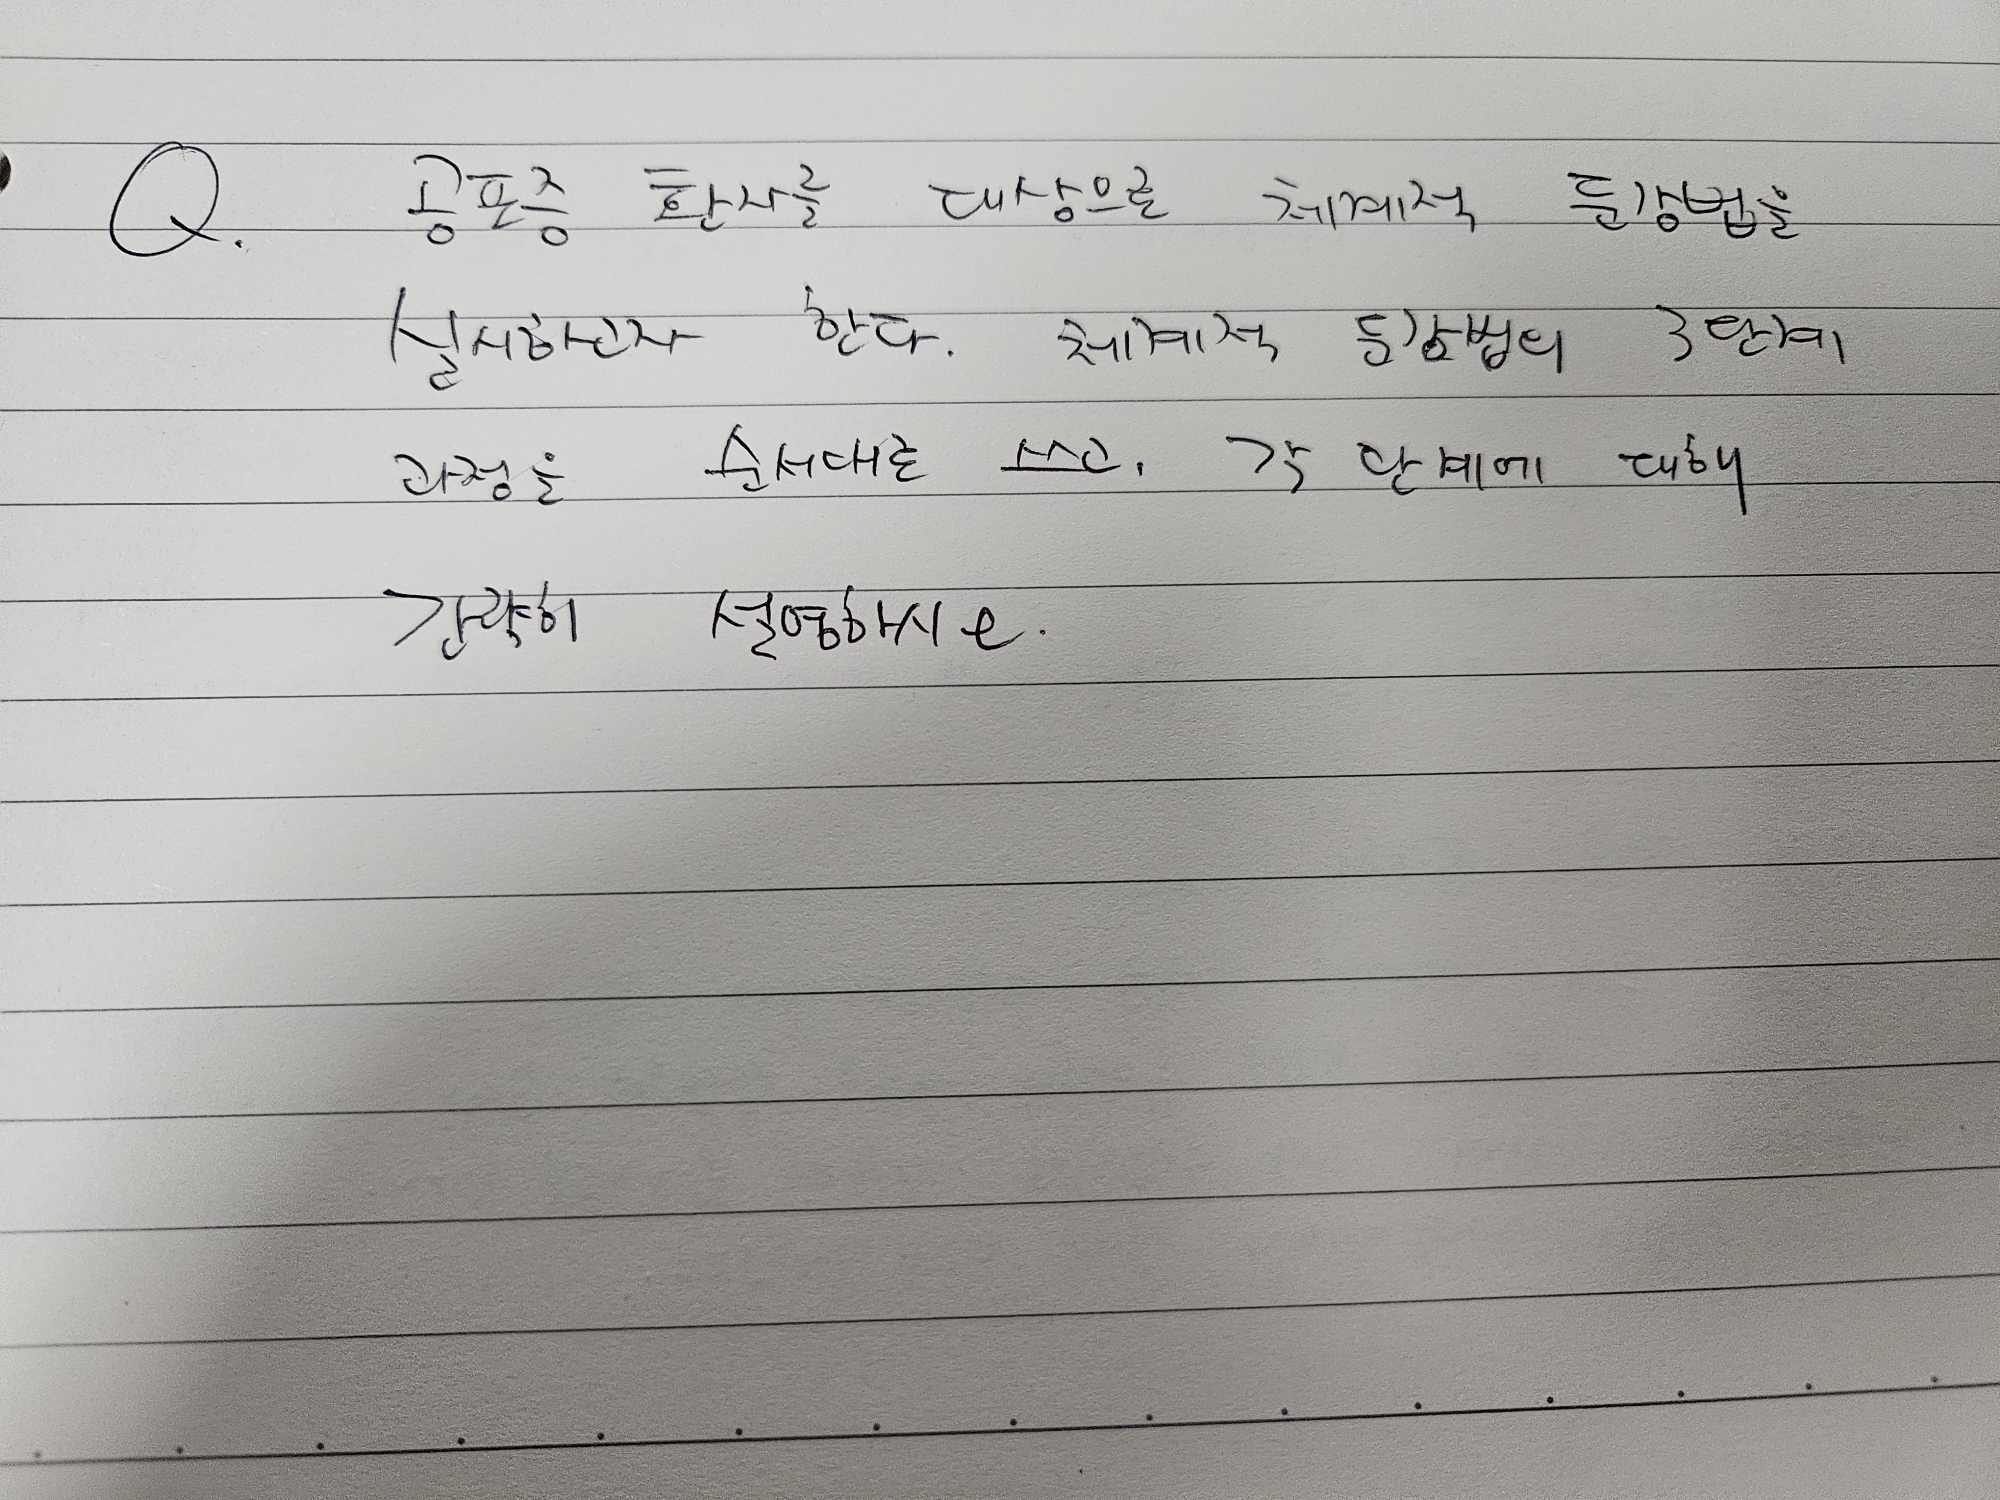 Q. 공포증 환자를 대상으로 체계적 둔감법을
실시하고자 한다. 체계적 둔감법의 3단계
과정을 순서대로 쓰고, 각 단계에 대해
간략히 설명하시오.